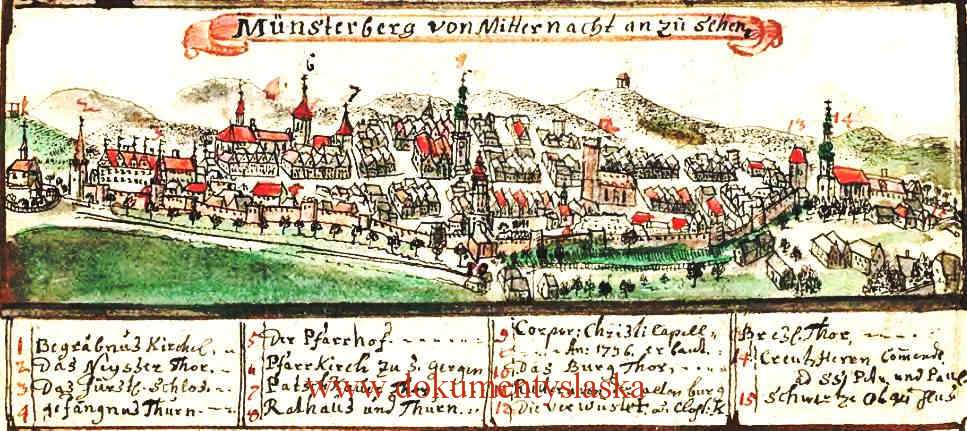 Münsterberg von Mitternacht an zu sehen
6
7
9
2
3
12
13
14
1 Begräbnus Kirchel
2 Das Neysser Thor
3 Das Fürstl. Schloss
4 gefängnus Thurn
5 Der Pfarrhof
6 Pfarr Kirch zu S. gergen
7 Thor
8 Rathaus und Thurn
9 Corpor: Christi Capell
An: 1736. erbaut
10 Das Burg Thor
12 Die verwüstet
Bresl. Thor
14 Creutz Herren Comende
ad SS Petr. und Paul
15 Schwartze flus
www.dokumentyslaska